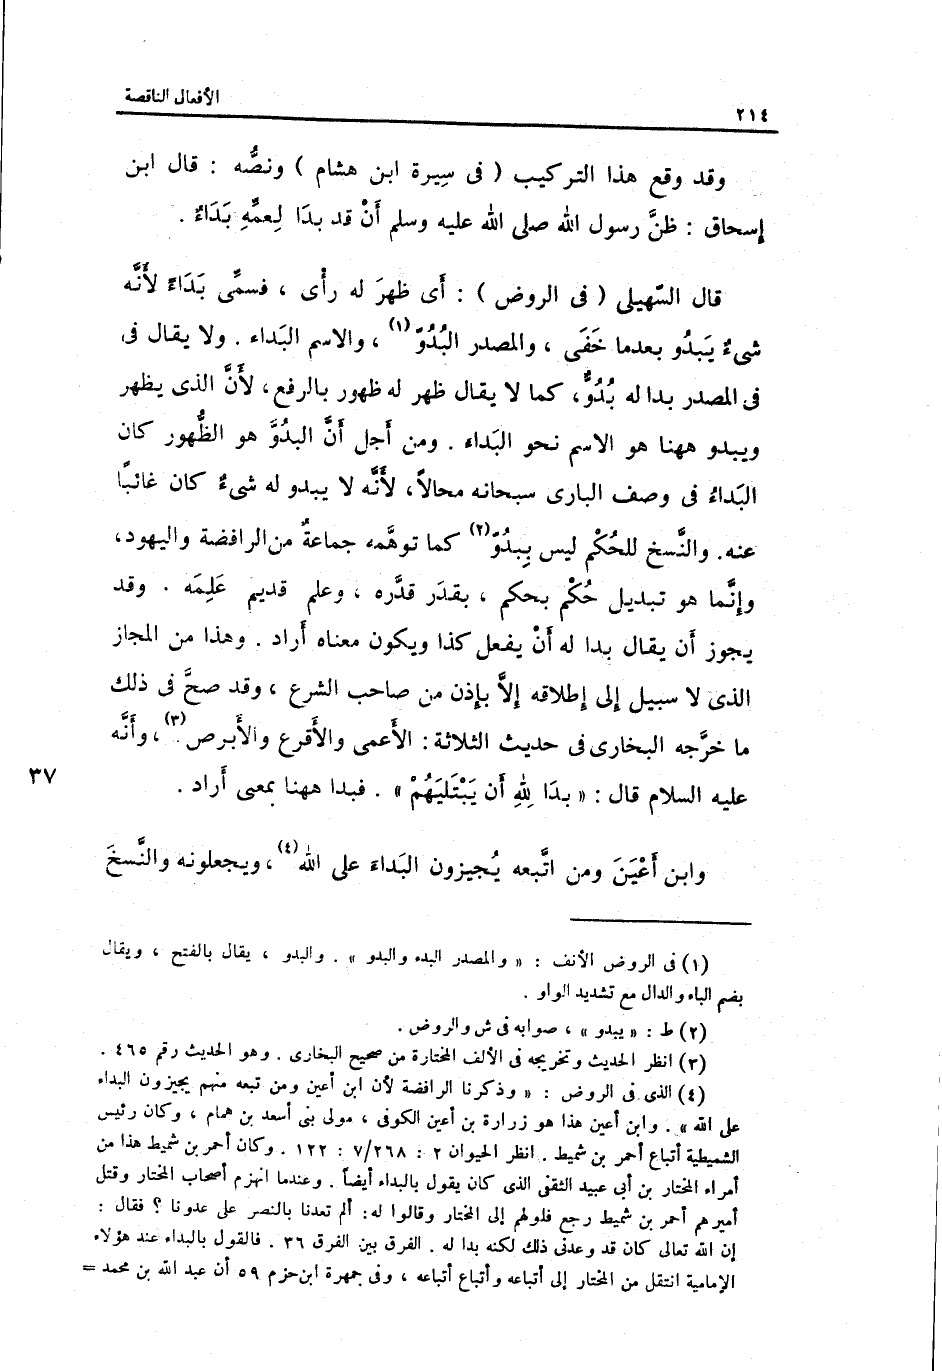 الأفعال الناقصة
٢١٤
وقد وقع هذا التركيب ( فى سِيرة ابن هشام ) ونصُّه : قال ابن
إسحاق : ظنَّ رسول الله صلى الله عليه وسلم أَنْ قد بدَا لِعمِّهِ بَدَاءٌ .
قال السّهيلى ( فى الروض ) : أَى ظهرَ له رأْى ، فسمِّى بَدَاءً لأَنَّه
شىءٌ يَبدُو بعدما خَفَى ، والمصدر البُدُوّ(١) ، والاسم البَداء . ولا يقال فى
فى المصدر بدا له بُدُوٌّ، كما لا يقال ظهر له ظهور بالرفع، لأَنَّ الذى يظهر
ويبدو ههنا هو الاسم نحو البَداء . ومن أَجل أَنَّ البدُوَّ هو الظُّهور كان
البَداءُ فى وصف البارى سبحانه محالاً، لأَنَّه لا يبدو له شىءٌ كان غائبًا
عنه. والنَّسخ للحُكْم ليس بِبدُوّ(٢) كما توهَّمه جماعةٌ من الرافضة واليهود،
وإنَّما هو تبديل حُكْم بحكم ، بقدَر قدَّره ، وعلم قديم عَلِمَه . وقد
يجوز أَن يقال بدا له أَنْ يفعل كذا ويكون معناه أَراد . وهذا من المجاز
الذى لا سبيل إلى إطلاقه إلاَّ بإذن من صاحب الشرع ، وقد صحَّ فى ذلك
ما خرَّجه البخارى فى حديث الثلاثة : الأَعمى والأَقرع والأَبرص(٣)، وأَنَّه
عليه السلام قال : « بدَا للهِ أَن يَبْتَليَهُمْ » . فبدا ههنا بمعنى أَراد .
٣٧
وابن أَعْيَنَ ومن اتَّبعه يُجيزون البَداءَ على الله(٤)، ويجعلونه والنَّسخَ
(١) فى الروض الأنف : « والمصدر البدء والبدو » . والبدو ، يقال بالفتح ، ويقال
بضم الباء والدال مع تشديد الواو .
(٢) ط : « يبدو » ، صوابه فى ش والروض .
(٣) انظر الحديث وتخريجه فى الألف المختارة من صحيح البخارى . وهو الحديث رقم ٤٦٥ .
(٤) الذى فى الروض : « وذكرنا الرافضة لأن ابن أعين ومن تبعه منهم يجيزون البداء
على الله » . وابن أعين هذا هو زرارة بن أعين الكوفى ، مولى بنى أسعد بن همام ، وكان رئيس
الشميطية أتباع أحمر بن شميط . انظر الحيوان ٢ : ٧/٢٦٨ : ١٢٢ . وكان أحمر بن شميط هذا من
أمراء المختار بن أبى عبيد الثقفى الذى كان يقول بالبداء أيضاً . وعندما انهزم أصحاب المختار وقتل
أميرهم أحمر بن شميط رجع فلولهم إلى المختار وقالوا له : ألم تعدنا بالنصر على عدونا ؟ فقال :
إن الله تعالى كان قد وعدنى ذلك لكنه بدا له . الفرق بين الفرق ٣٦ . فالقول بالبداء عند هؤلاء
الإمامية انتقل من المختار إلى أتباعه وأتباع أتباعه ، وفى جمهرة ابن حزم ٥٩ أن عبد الله بن محمد =